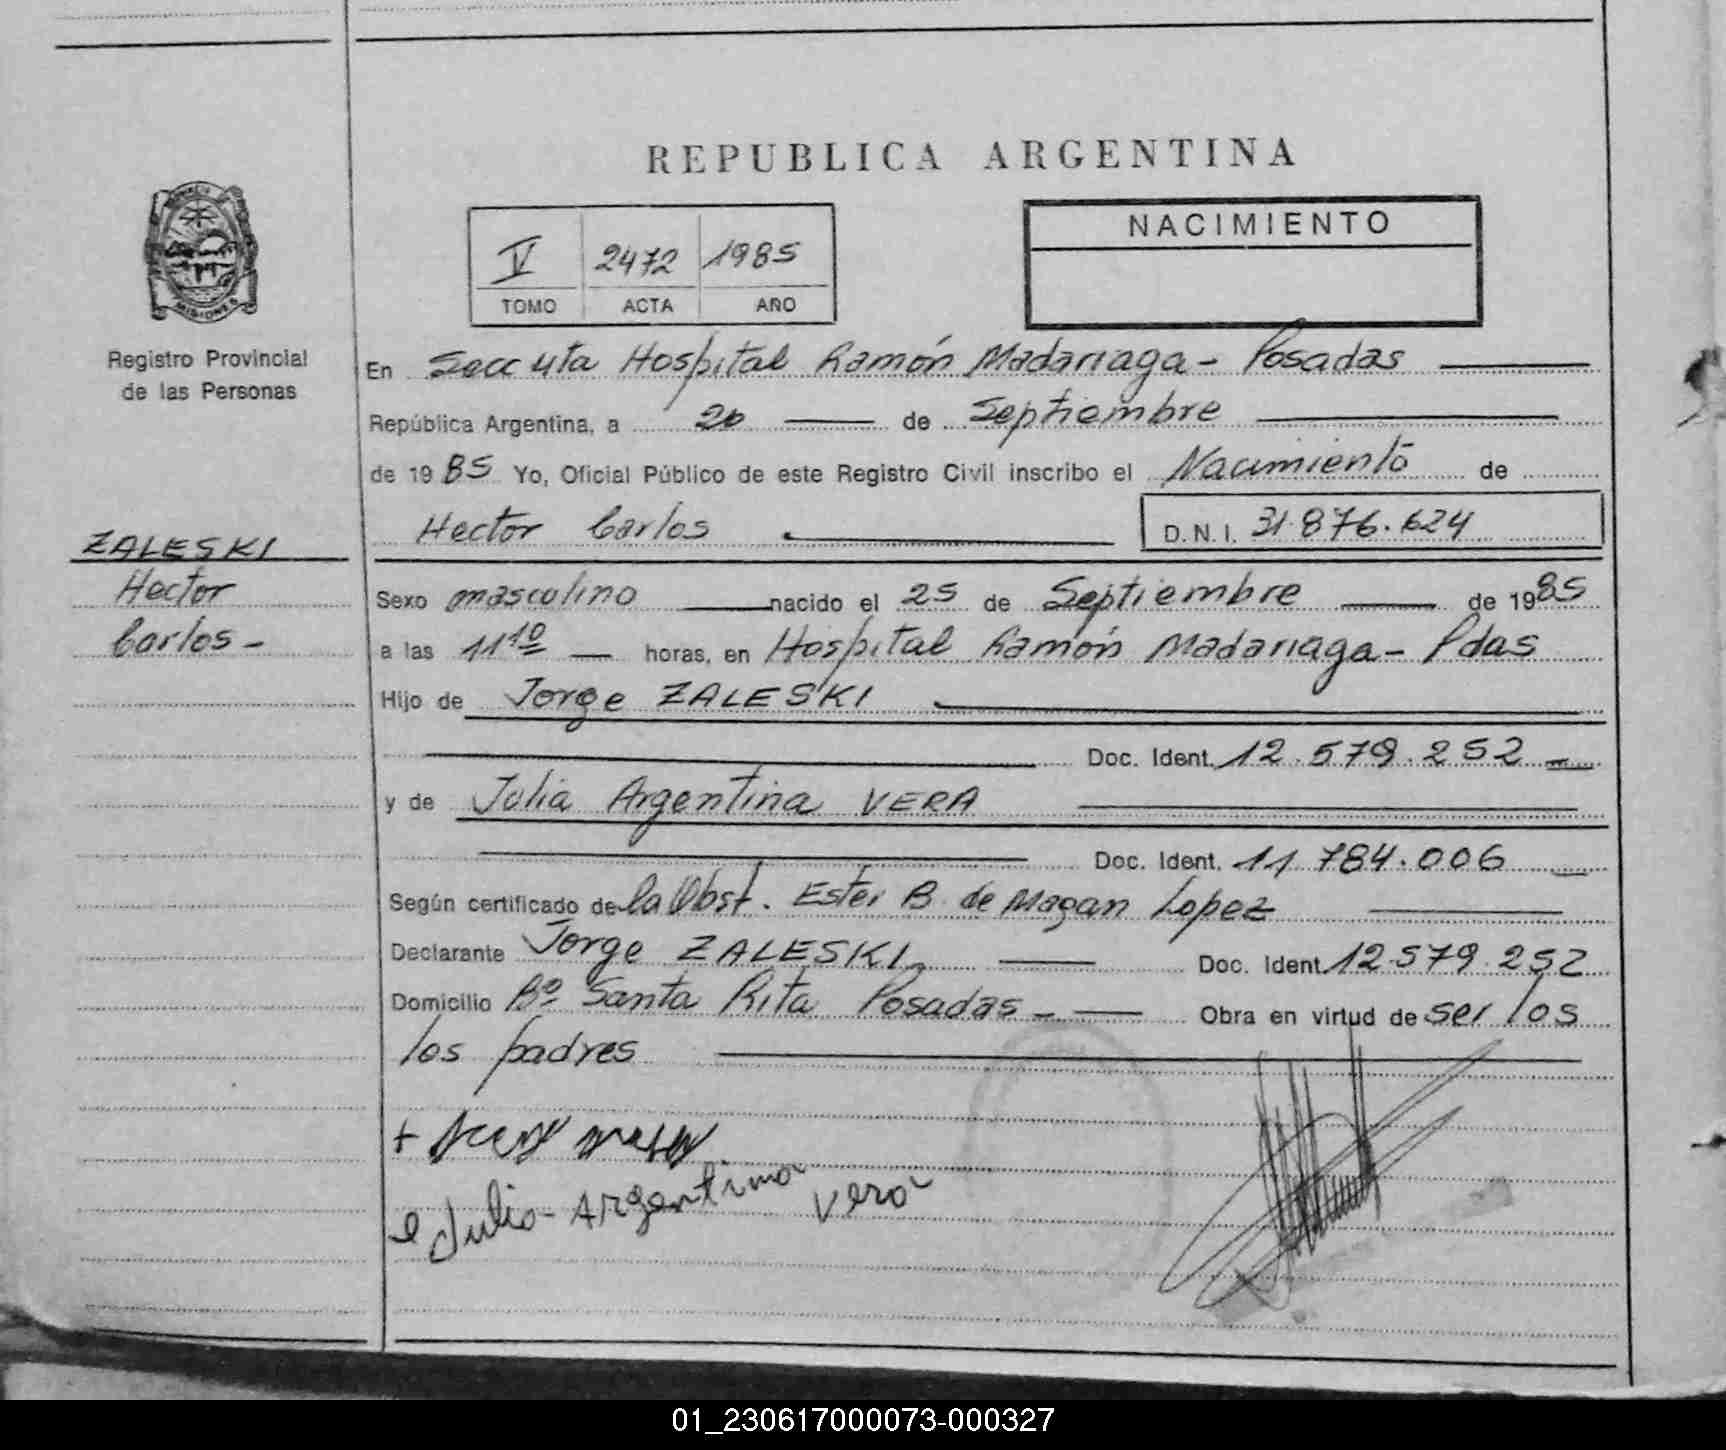 REPUBLICA ARGENTINA
NACIMIENTO
V 2472 1985
TOMO ACTA AÑO
MISIONES
Registro Provincial
de las Personas
En Secc 4ta Hospital Ramón Madariaga - Posadas
República Argentina, a 26 de Septiembre
de 1985 Yo, Oficial Público de este Registro Civil inscribo el Nacimiento de
Hector Carlos D.N.I. 31.876.624
ZALESKI
Hector
Carlos -
Sexo masculino nacido el 25 de Septiembre de 1985
a las 11 10 horas, en Hospital Ramón Madariaga - Pdas
Hijo de Jorge ZALESKI
Doc. Ident. 12.579.252
y de Julia Argentina VERA
Doc. Ident. 11 784.006
Según certificado de la Obst. Ester B. de Magan Lopez
Declarante Jorge ZALESKI Doc. Ident. 12.579.252
Domicilio Bº Santa Rita Posadas - Obra en virtud de ser los
los padres
Julia - Argentina Vera
01_230617000073-000327